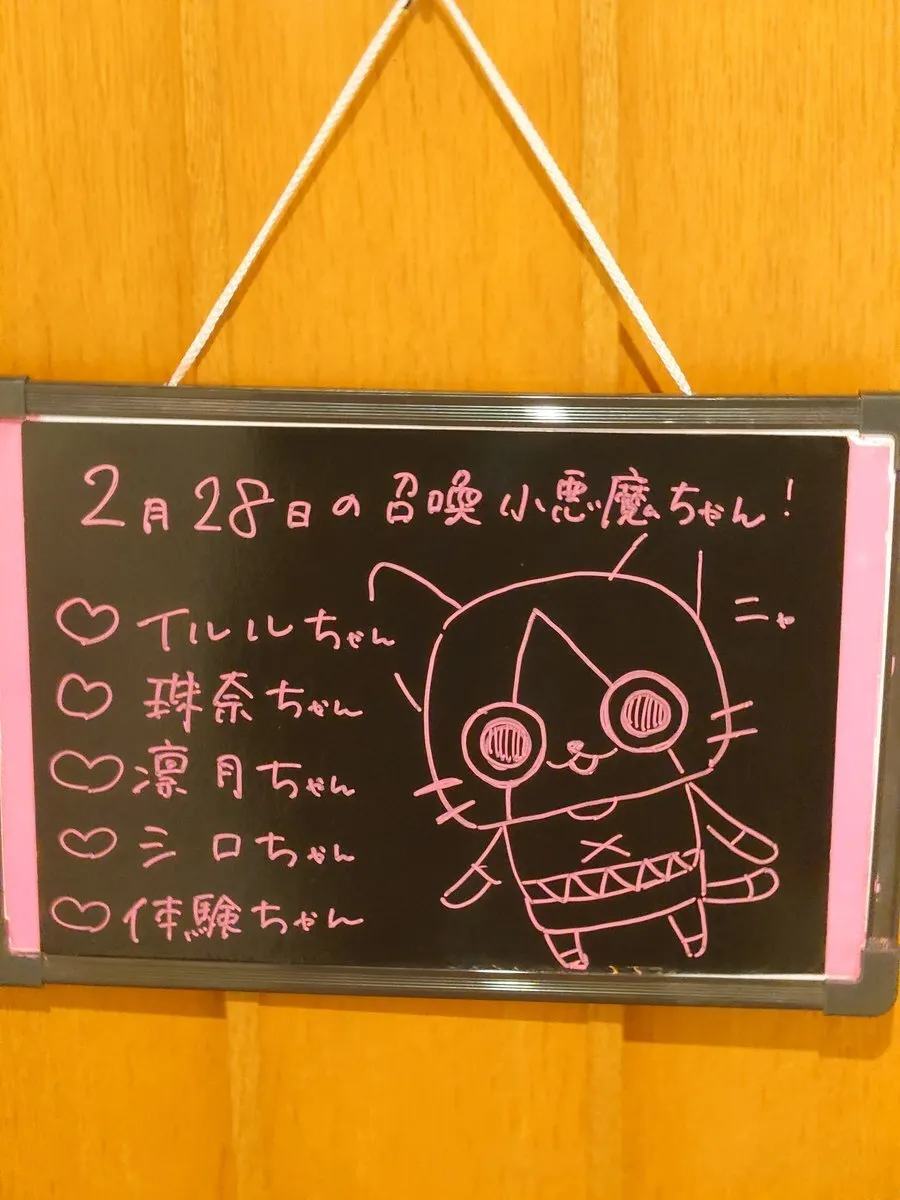 2月28日の召喚小悪魔ちゃん!
♡イルルちゃん
♡珠奈ちゃん
♡凛月ちゃん
♡シロちゃん
♡体験ちゃん
ニャ